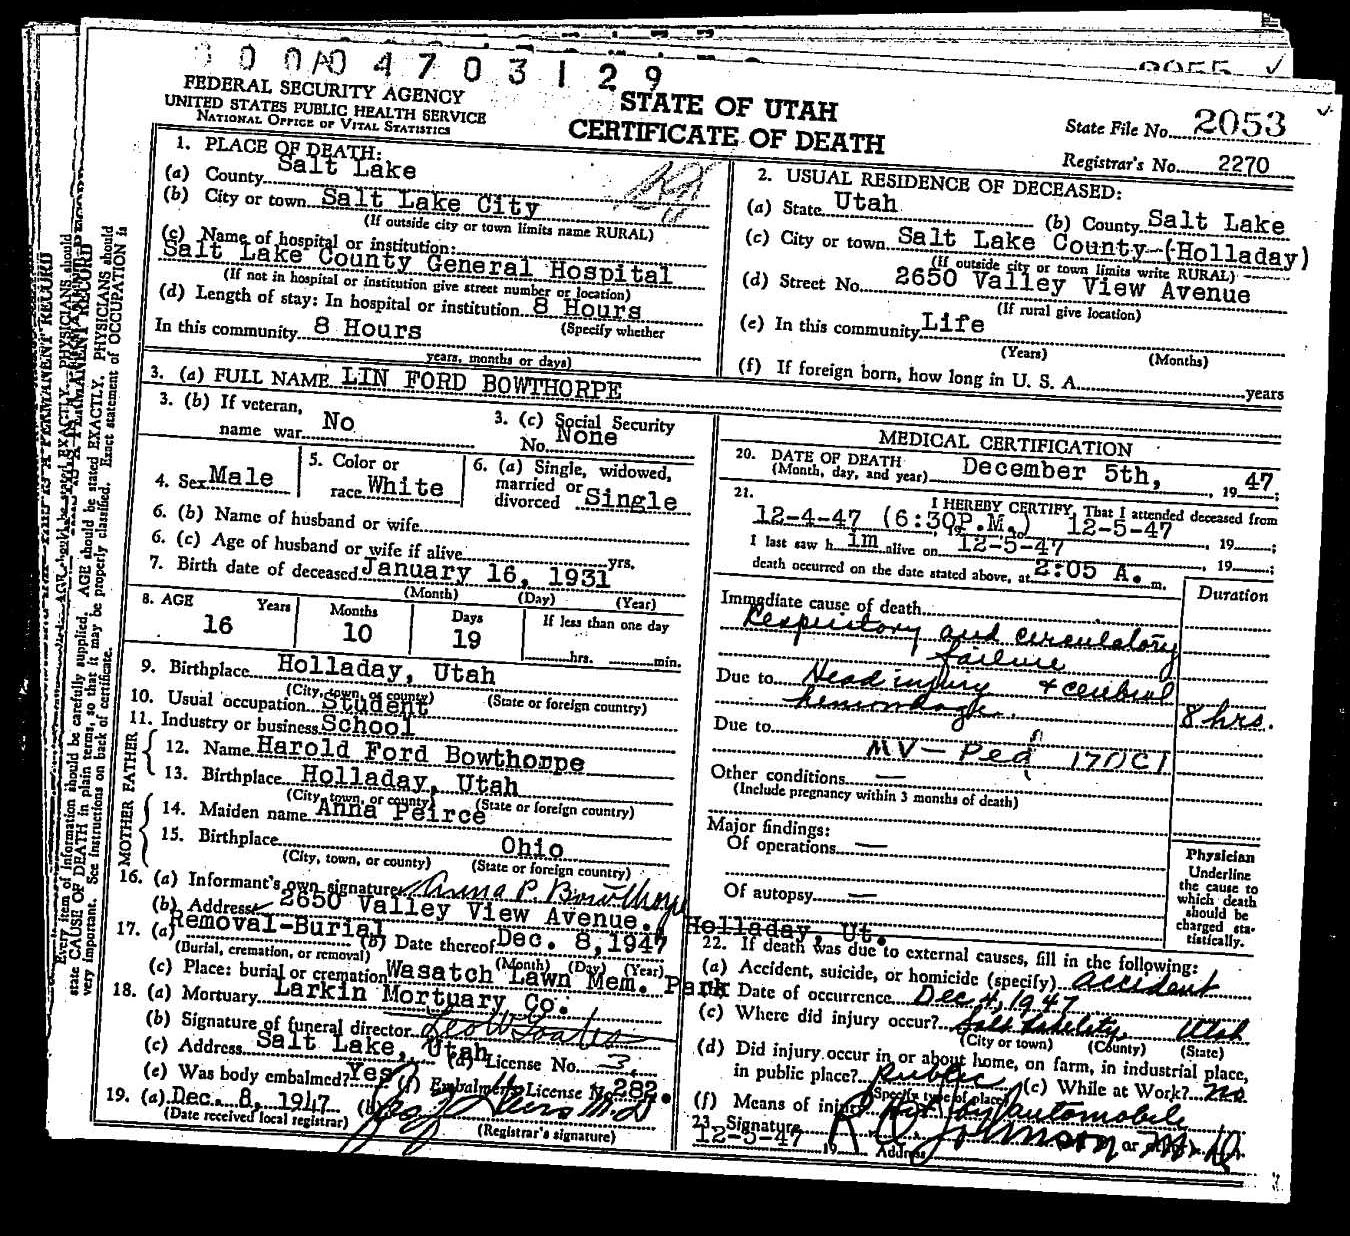 0004703129
2055
FEDERAL SECURITY AGENCY
UNITED STATES PUBLIC HEALTH SERVICE
NATIONAL OFFICE OF VITAL STATISTICS
STATE OF UTAH
CERTIFICATE OF DEATH
State File No. 2053
Registrar's No. 2270
1. PLACE OF DEATH:
(a) County Salt Lake
(b) City or town Salt Lake City
(If outside city or town limits name RURAL)
(c) Name of hospital or institution:
Salt Lake County General Hospital
(If not in hospital or institution give street number or location)
(d) Length of stay: In hospital or institution 8 Hours
(Specify whether
In this community 8 Hours
years, months or days)
2. USUAL RESIDENCE OF DECEASED:
(a) State Utah (b) County Salt Lake
(c) City or town Salt Lake County-(Holladay)
(If outside city or town limits write RURAL)
(d) Street No. 2650 Valley View Avenue
(If rural give location)
(e) In this community Life
(Years) (Months)
(f) If foreign born, how long in U. S. A. years
3. (a) FULL NAME LIN FORD BOWTHORPE
3. (b) If veteran, name war No
3. (c) Social Security No. None
4. Sex Male
5. Color or race White
6. (a) Single, widowed, married or divorced Single
6. (b) Name of husband or wife
6. (c) Age of husband or wife if alive yrs.
7. Birth date of deceased January 16, 1931
(Month) (Day) (Year)
8. AGE Years Months Days If less than one day
16 10 19 hrs. min.
9. Birthplace Holladay, Utah
(City, town, or county) (State or foreign country)
10. Usual occupation Student
11. Industry or business School
FATHER
12. Name Harold Ford Bowthorpe
13. Birthplace Holladay, Utah
(City, town, or county) (State or foreign country)
MOTHER
14. Maiden name Anna Peirce
15. Birthplace Ohio
(City, town, or county) (State or foreign country)
16. (a) Informant's own signature Anna P. Bowthorpe
(b) Address 2650 Valley View Avenue. Holladay, Ut.
17. (a) Removal-Burial (b) Date thereof Dec. 8, 1947
(Burial, cremation, or removal) (Month) (Day) (Year)
(c) Place: burial or cremation Wasatch Lawn Mem. Park
18. (a) Mortuary Larkin Mortuary Co.
(b) Signature of funeral director
(c) Address Salt Lake, Utah (d) License No. 3
(e) Was body embalmed? Yes (f) Embalmer License No. 282.
19. (a) Dec. 8, 1947 (b) M.D
(Date received local registrar) (Registrar's signature)
MEDICAL CERTIFICATION
20. DATE OF DEATH
(Month, day, and year) December 5th, , 1947;
21. I HEREBY CERTIFY, That I attended deceased from
12-4-47 (6:30P.M.) to 12-5-47 , 19 ;
I last saw him alive on 12-5-47 , 19 ;
death occurred on the date stated above, at 2:05 A. m.
Duration
Immediate cause of death
Respiritory and circulatory
failure
Due to Head injury & cerebral
hemorrhage. 8 hrs.
Due to
MV - Ped 170C1
Other conditions —
(Include pregnancy within 3 months of death)
Major findings:
Of operations —
Of autopsy —
Physician
Underline
the cause to
which death
should be
charged sta-
tistically.
22. If death was due to external causes, fill in the following:
(a) Accident, suicide, or homicide (specify) Accident
(b) Date of occurrence Dec 4, 1947
(c) Where did injury occur? Salt Lake City, Utah
(City or town) (County) (State)
(d) Did injury occur in or about home, on farm, in industrial place,
in public place? public (e) While at Work? no
(Specify type of place)
(f) Means of injury Hit by automobile
23. Signature R Johnson or M.D.
12-5-47 19 Address
Every item of information should be carefully supplied. AGE should be stated EXACTLY. PHYSICIANS should
state CAUSE OF DEATH in plain terms, so that it may be properly classified. Exact statement of OCCUPATION is
very important. See instructions on back of certificate.